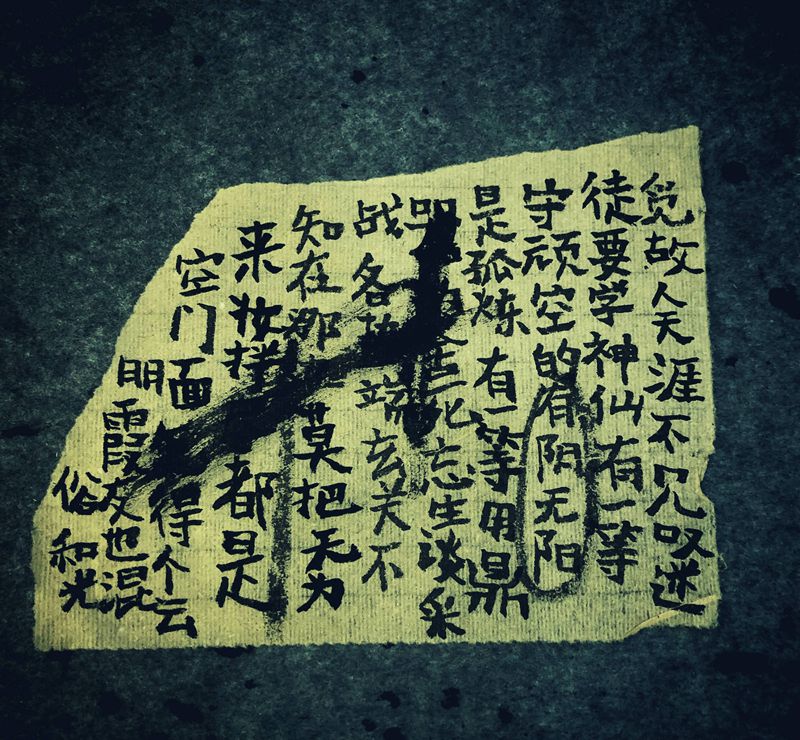 觅故人天涯不见叹迷
徒要学神仙有一等
守顽空的有阴无阳
是孤炼有一等用鼎
金死忘生谈采
战各执端玄关不
知在那莫把无为
来妆都是
空门面得个云
明霞友也混
俗和光